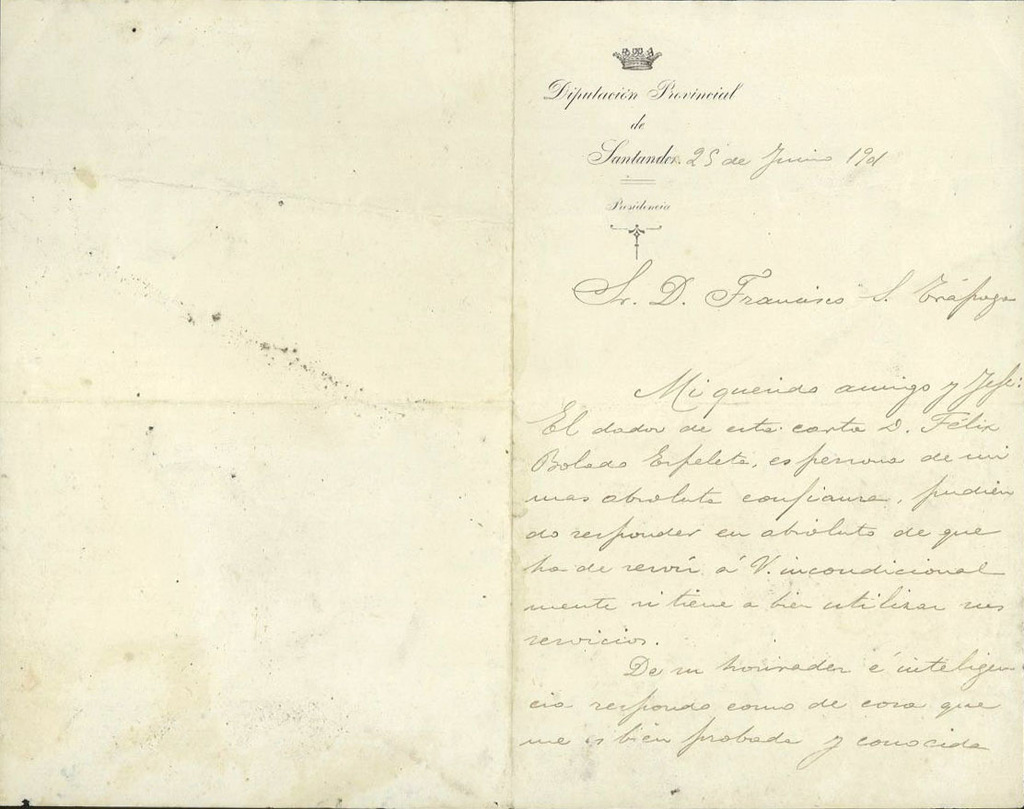 Diputación Provincial
de
Santander 25 de Junio 191
Presidencia
Sr. D. Francisco S. Trápaga
Mi querido amigo y Jefe:
El dador de esta carta D. Félix
Bolado Espeleta, es persona de mi
mas absoluta confianza, pudien
do responder en absoluto de que
ha de servir á V. incondicional
mente si tiene a bien utilizar sus
servicios.
De su honradez é inteligen
cia respondo como de cosa que
me es bien probada y conocida